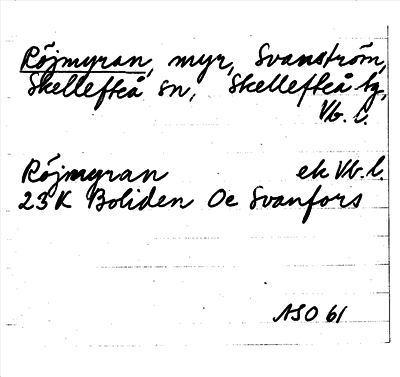 Röjmyran, myr, Svanström,
Skellefteå sn, Skellefteå tg,
Vb. l.
Röjmyran ek Vb. l.
23 K Boliden Oe Svanfors
ASO 61